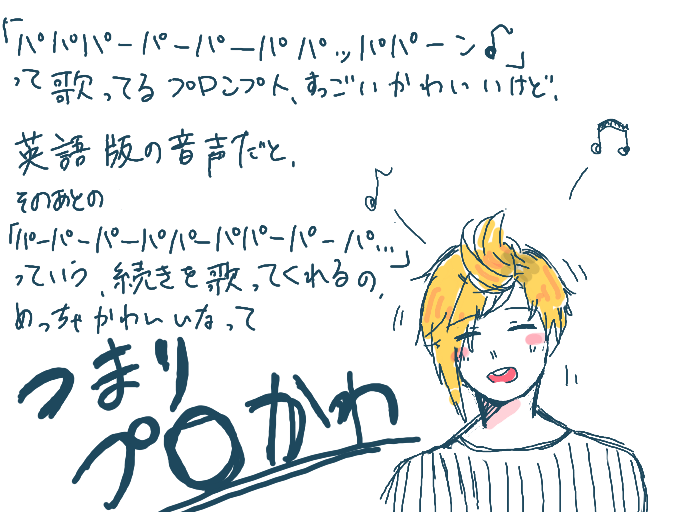 「パパパーパーパーパパッパパーン♪」
って歌ってるプロンプト、すっごいかわいいけど、
英語版の音声だと、
そのあとの
「パーパーパーパパーパパーパーパ…」
っていう、続きを歌ってくれるの、
めっちゃかわいいなって
つまり
プロかわ